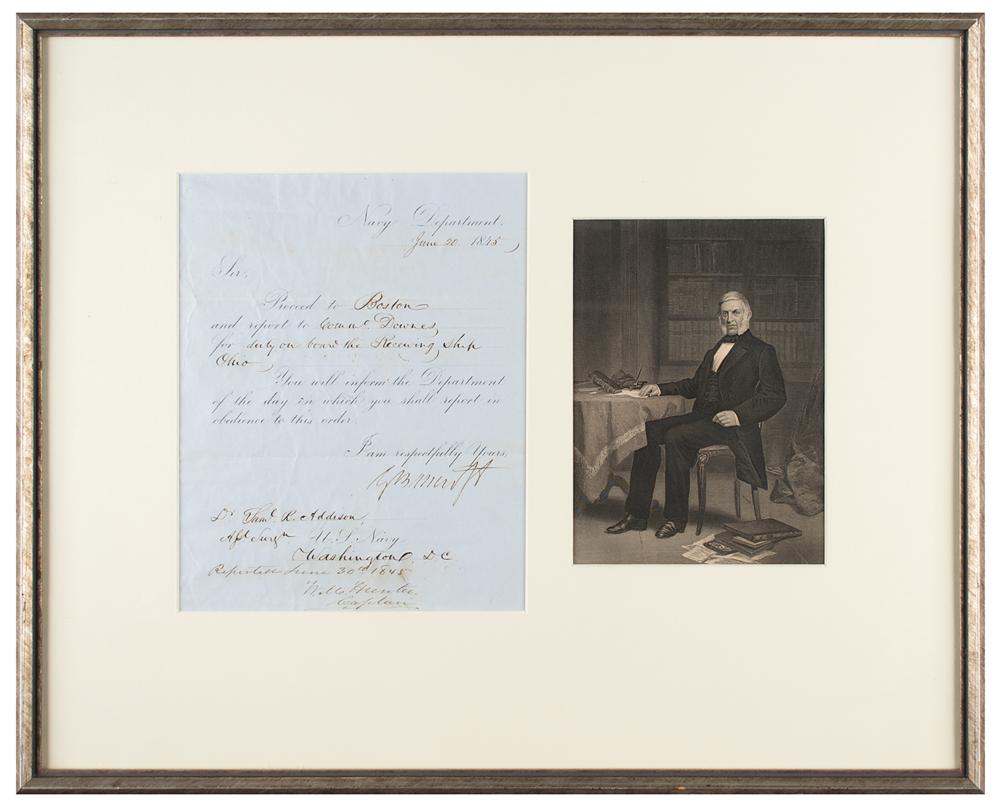 Navy Department.
June 20. 1845
Sir,
Proceed to Boston
and report to Comme. Downes,
for duty on board the Receiving Ship
Ohio
You will inform the Department
of the day on which you shall report in
obedience to this order.
I am respectfully Yours,
G Bancroft
Dr. R. Addison,
Asst Surgn U. S. Navy
Washington, D C
Reported June 30th 1845
Hunter.
Captain